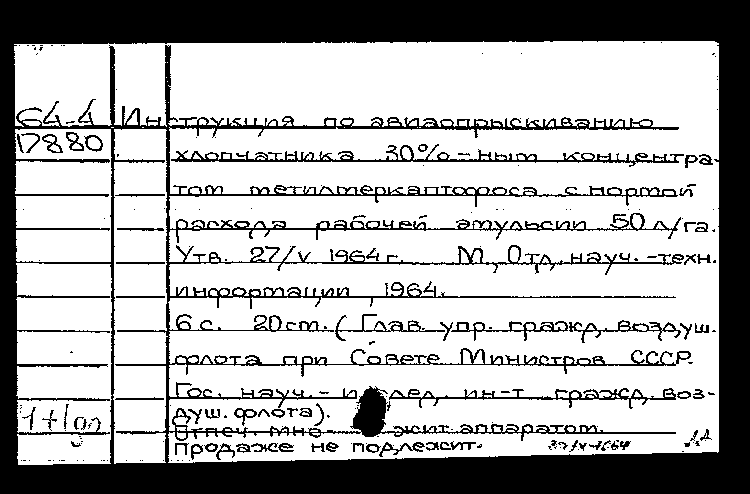 64-4 Инструкция по авиаопрыскиванию
17880 хлопчатника 30%-ным концентра-
том метилмеркаптофоса с нормой
расхода рабочей эмульсии 50 л/га.
Утв. 27/V 1964 г. М., Отд. науч.-техн.
информации, 1964.
6 с. 20 см. (Глав. упр. гражд. воздуш.
флота при Совете Министров СССР.
Гос. науч.-и след. ин-т гражд. воз-
душ. флота).
Отпеч. мно- жит. аппаратом.
Продаже не подлежит.